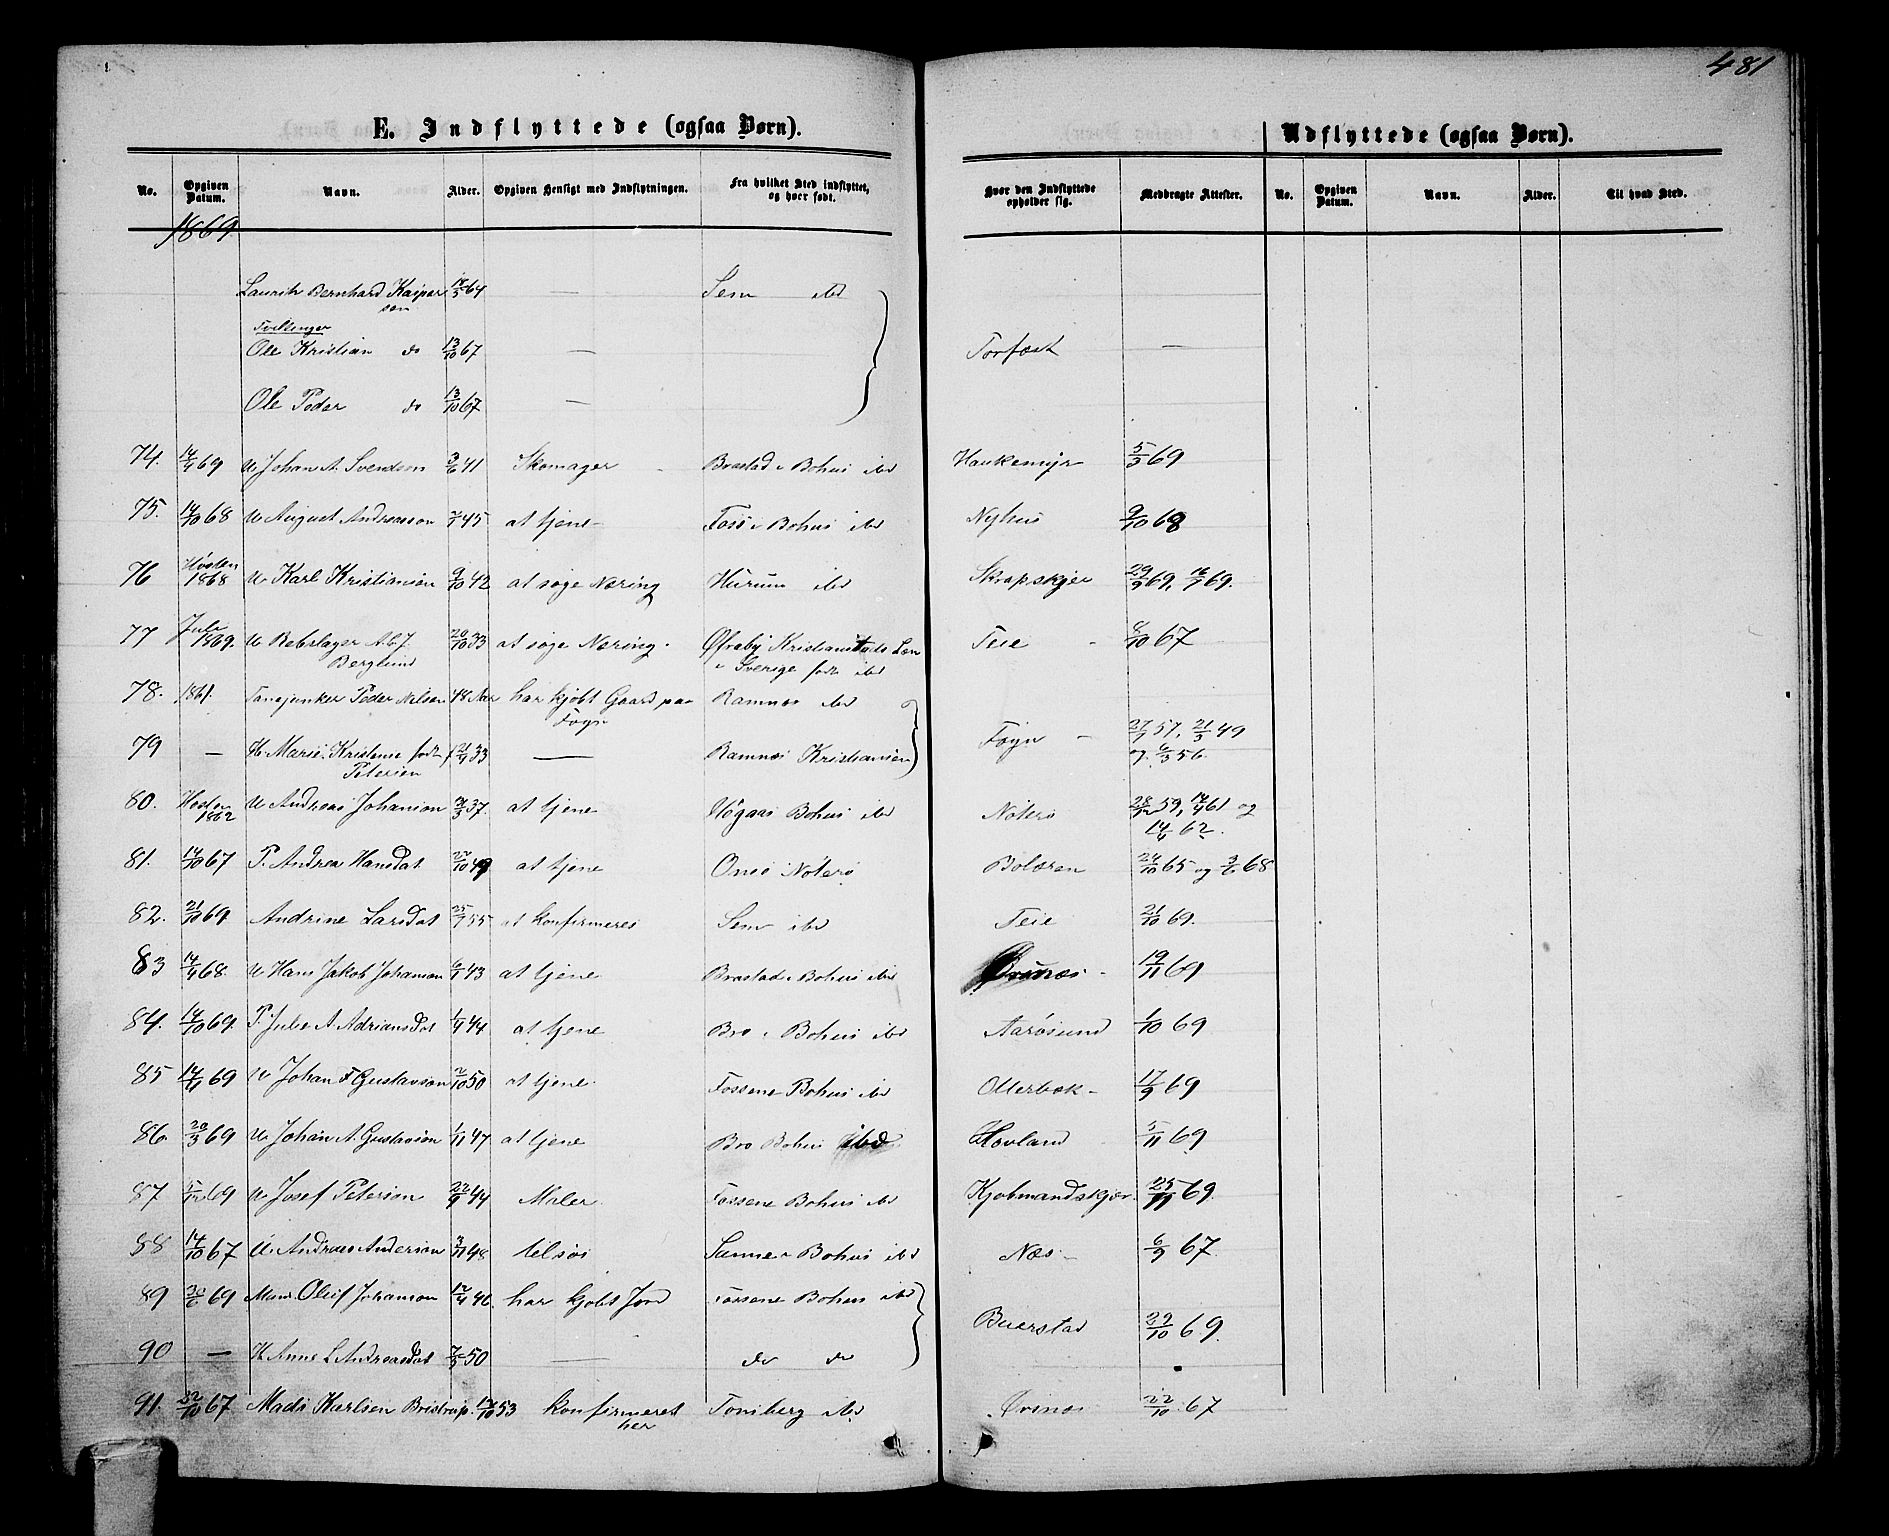 481
E. Indflyttede (ogsaa Børn).
Udflyttede (ogsaa Børn).
No. Opgiven Datum. Navn. Alder. Opgiven Hensigt med Indflytningen. Fra hvilket Sted indflyttet, og hvor født. Hvor den Indflyttede opholder sig. Medbragte Attester. No. Opgiven Datum. Navn. Alder. Til hvad Sted.
1869.
Lauritz Bernhard Kasper 64 — Sem ibd
sen
Tvillinger
Ole Kristian do 13/10 67 — Torfæst —
Ole Peder do 13/10 67 —
74. 14/4 69 U. Johan A. Svendsen 3/6 41 Skomager Brastad i Bohus ibd Haukemyr 5/3 69
75. 14/10 68 U. August Andreasson 45 at tjene Foss i Bohus ibd Nyhus 9/10 68
76 Høsten 1868 U. Karl Kristiansen 9/10 42 at søge Næring Hurum ibd Skrapskjer 29/9 69, 16/7 69.
77 Juli 1869. U. Rebslager A. J. 20/10 33 at søge Næring. Øfraby Kristianstads Læn Teie 8/10 67
Berglund i Sverige født ibd
78. 1861. Peder Nilsen 48 Aar har kjøbt Gaard paa Ramnæs ibd
Føyn
79 — H. Marie Kristine født 21/9 33 — Ramnæs Kristiansen Føyn 27/7 57, 21/3 49
Petersen og 6/3 56.
80. Høsten 1862 U. Andreas Johanson 37. at tjene Høgaas Bohus ibd Nøterø 28/12 59, 14/4 61 og
14/6 62.
81. 14/10 67 P. Andrea Hansdat 22/10 49 at tjene Onsø Nøterø Bolæren 24/10 65 og 3/6 68
82. 21/10 69. Andrine Larsdat 25/7 55 at konfirmeres Sem ibd Teie 21/10 69.
83 14/4 68. U. Hans Jakob Johanson 43 at tjene Brastad i Bohus ibd Ørsnæs 19/11 69
84. 14/10 69. P. Julie A. Adriansdat 1/4 44 at tjene Bro i Bohus ibd Aarøsund 1/10 69
85 69 U. Johan F. Gustavson 2/10 50 at tjene Fossene Bohus ibd Otterbæk 17/9 69
86. 20/3 69 U. Johan A. Gustavson 1/11 47 at tjene Bro Bohus ibd Hovland 5/11 69
87 69 U. Josef Peterson 22/9 44 Maler Fossene Bohus ibd Kjøbmandskjær. 25/11 69.
88 14/10 67 U. Andreas Anderson 3/11 48 tilsøs Sanne i Bohus ibd Næs 6/9 67.
89 69 Mand. Oluf Johanson 12/4 46. har kjøbt Jord Fossene Bohus ibd
90 — H. Anne L. Andreasdat 50 — do do Buerstad 22/10 69.
91. 22/10 67 Mads Karlsen Bristrup. 53 konfirmeret Tønsberg ibd 22/10 67
her